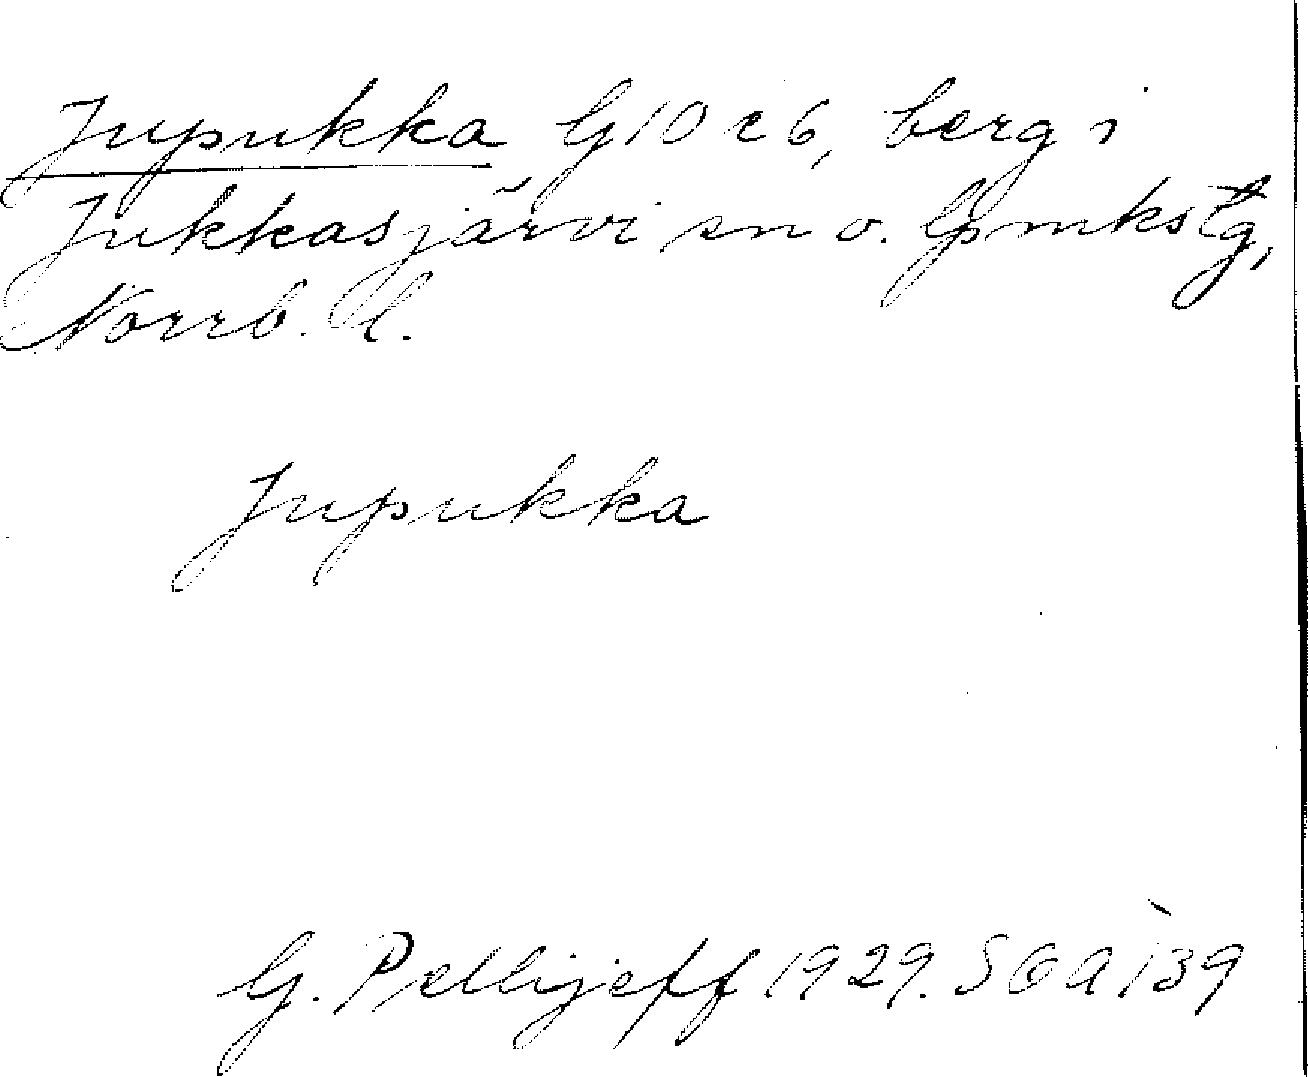 Jupukka G10c6, berg i
Jukkasjärvi sn o. lpmkstg,
Norrb. l.
Jupukka
G. Pellijeff 1929. SOA 139